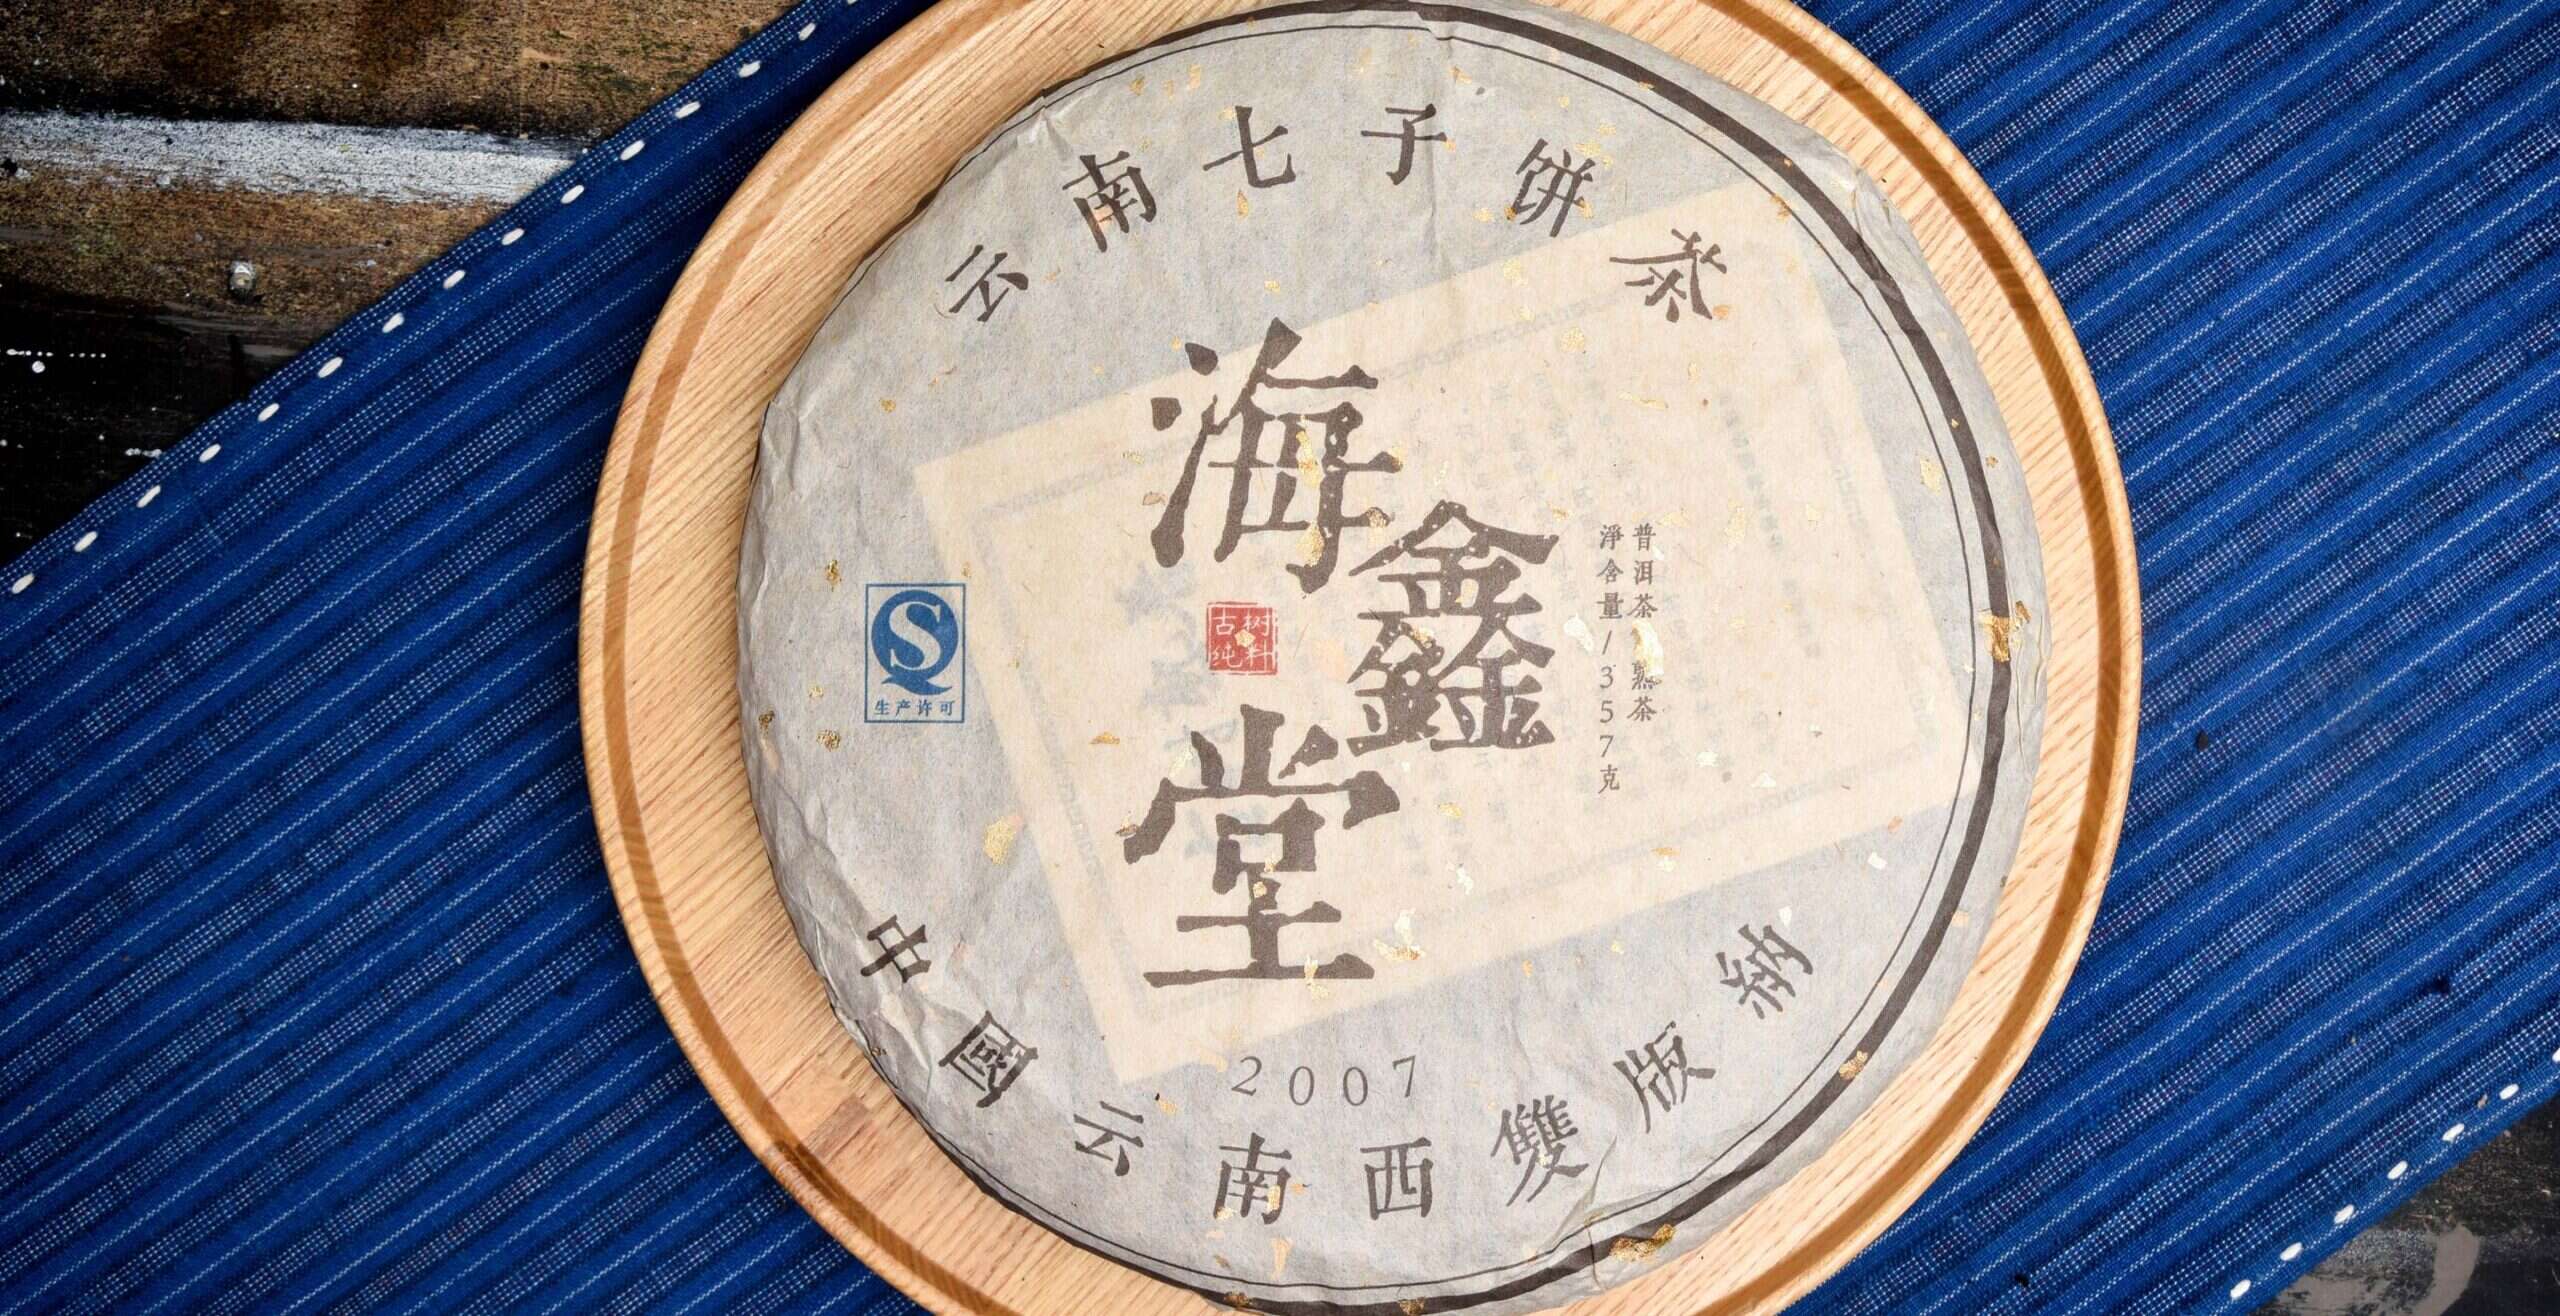 云南七子饼茶
海鑫堂
普洱茶 熟茶
淨含量/357克
古树
纯料
生产许可
2007
中國云南西雙版納